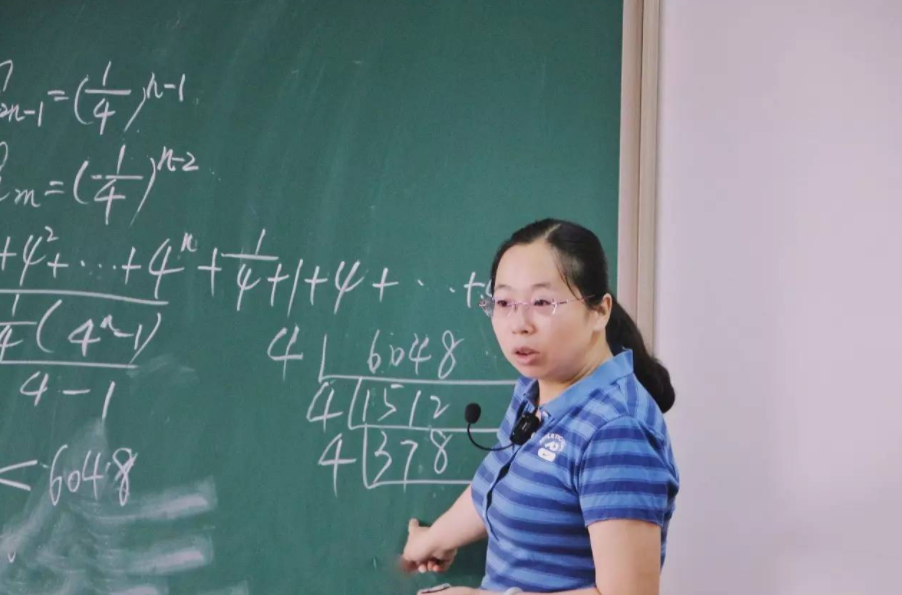 2n-1=(1/4)^n-1
m=(-1/4)^n-2
+4²+···+4^n+1/4+1+4+···+
1/4(4^n-1)
4-1
4 6048
4 1512
4 378
<6048